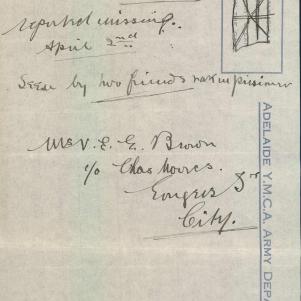 reported missing.
April 2nd
Seen by two friends taken prisoner
Mrs V. E. E. Brown
c/o Chas Moores.
City.
ADELAIDE Y.M.C.A. ARMY DEPA